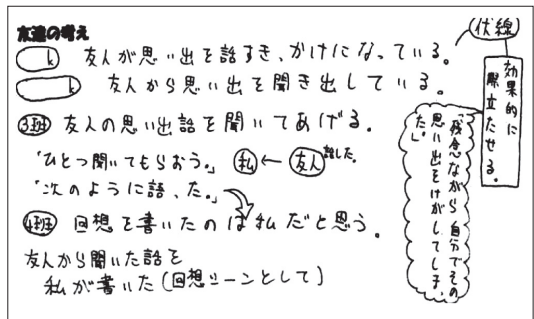 友達の考え
k 友人が思い出を話すき、かけになっている。
k 友人から思い出を聞き出している。
3班 友人の思い出話を聞いてあげる。
「ひとつ聞いてもらおう。」 私 ← 友人 話した。
「次のように語、た。」
4班 回想を書いたのは私だと思う。
友人から聞いた話を
私が書いた(回想シーンとして)
伏線
効果的に
際立たせる。
「残念ながら自分でその
思い出をけがしてしま、
た。」